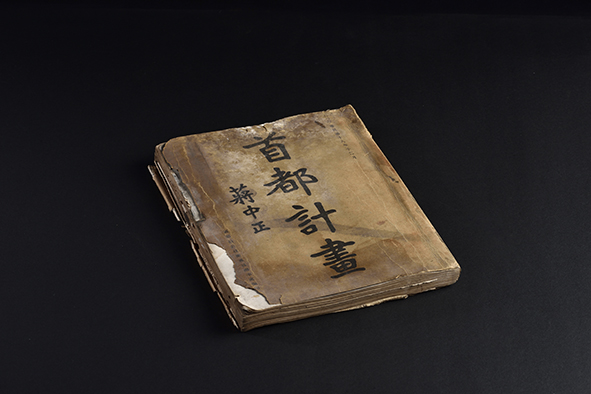 首都計畫
蔣中正